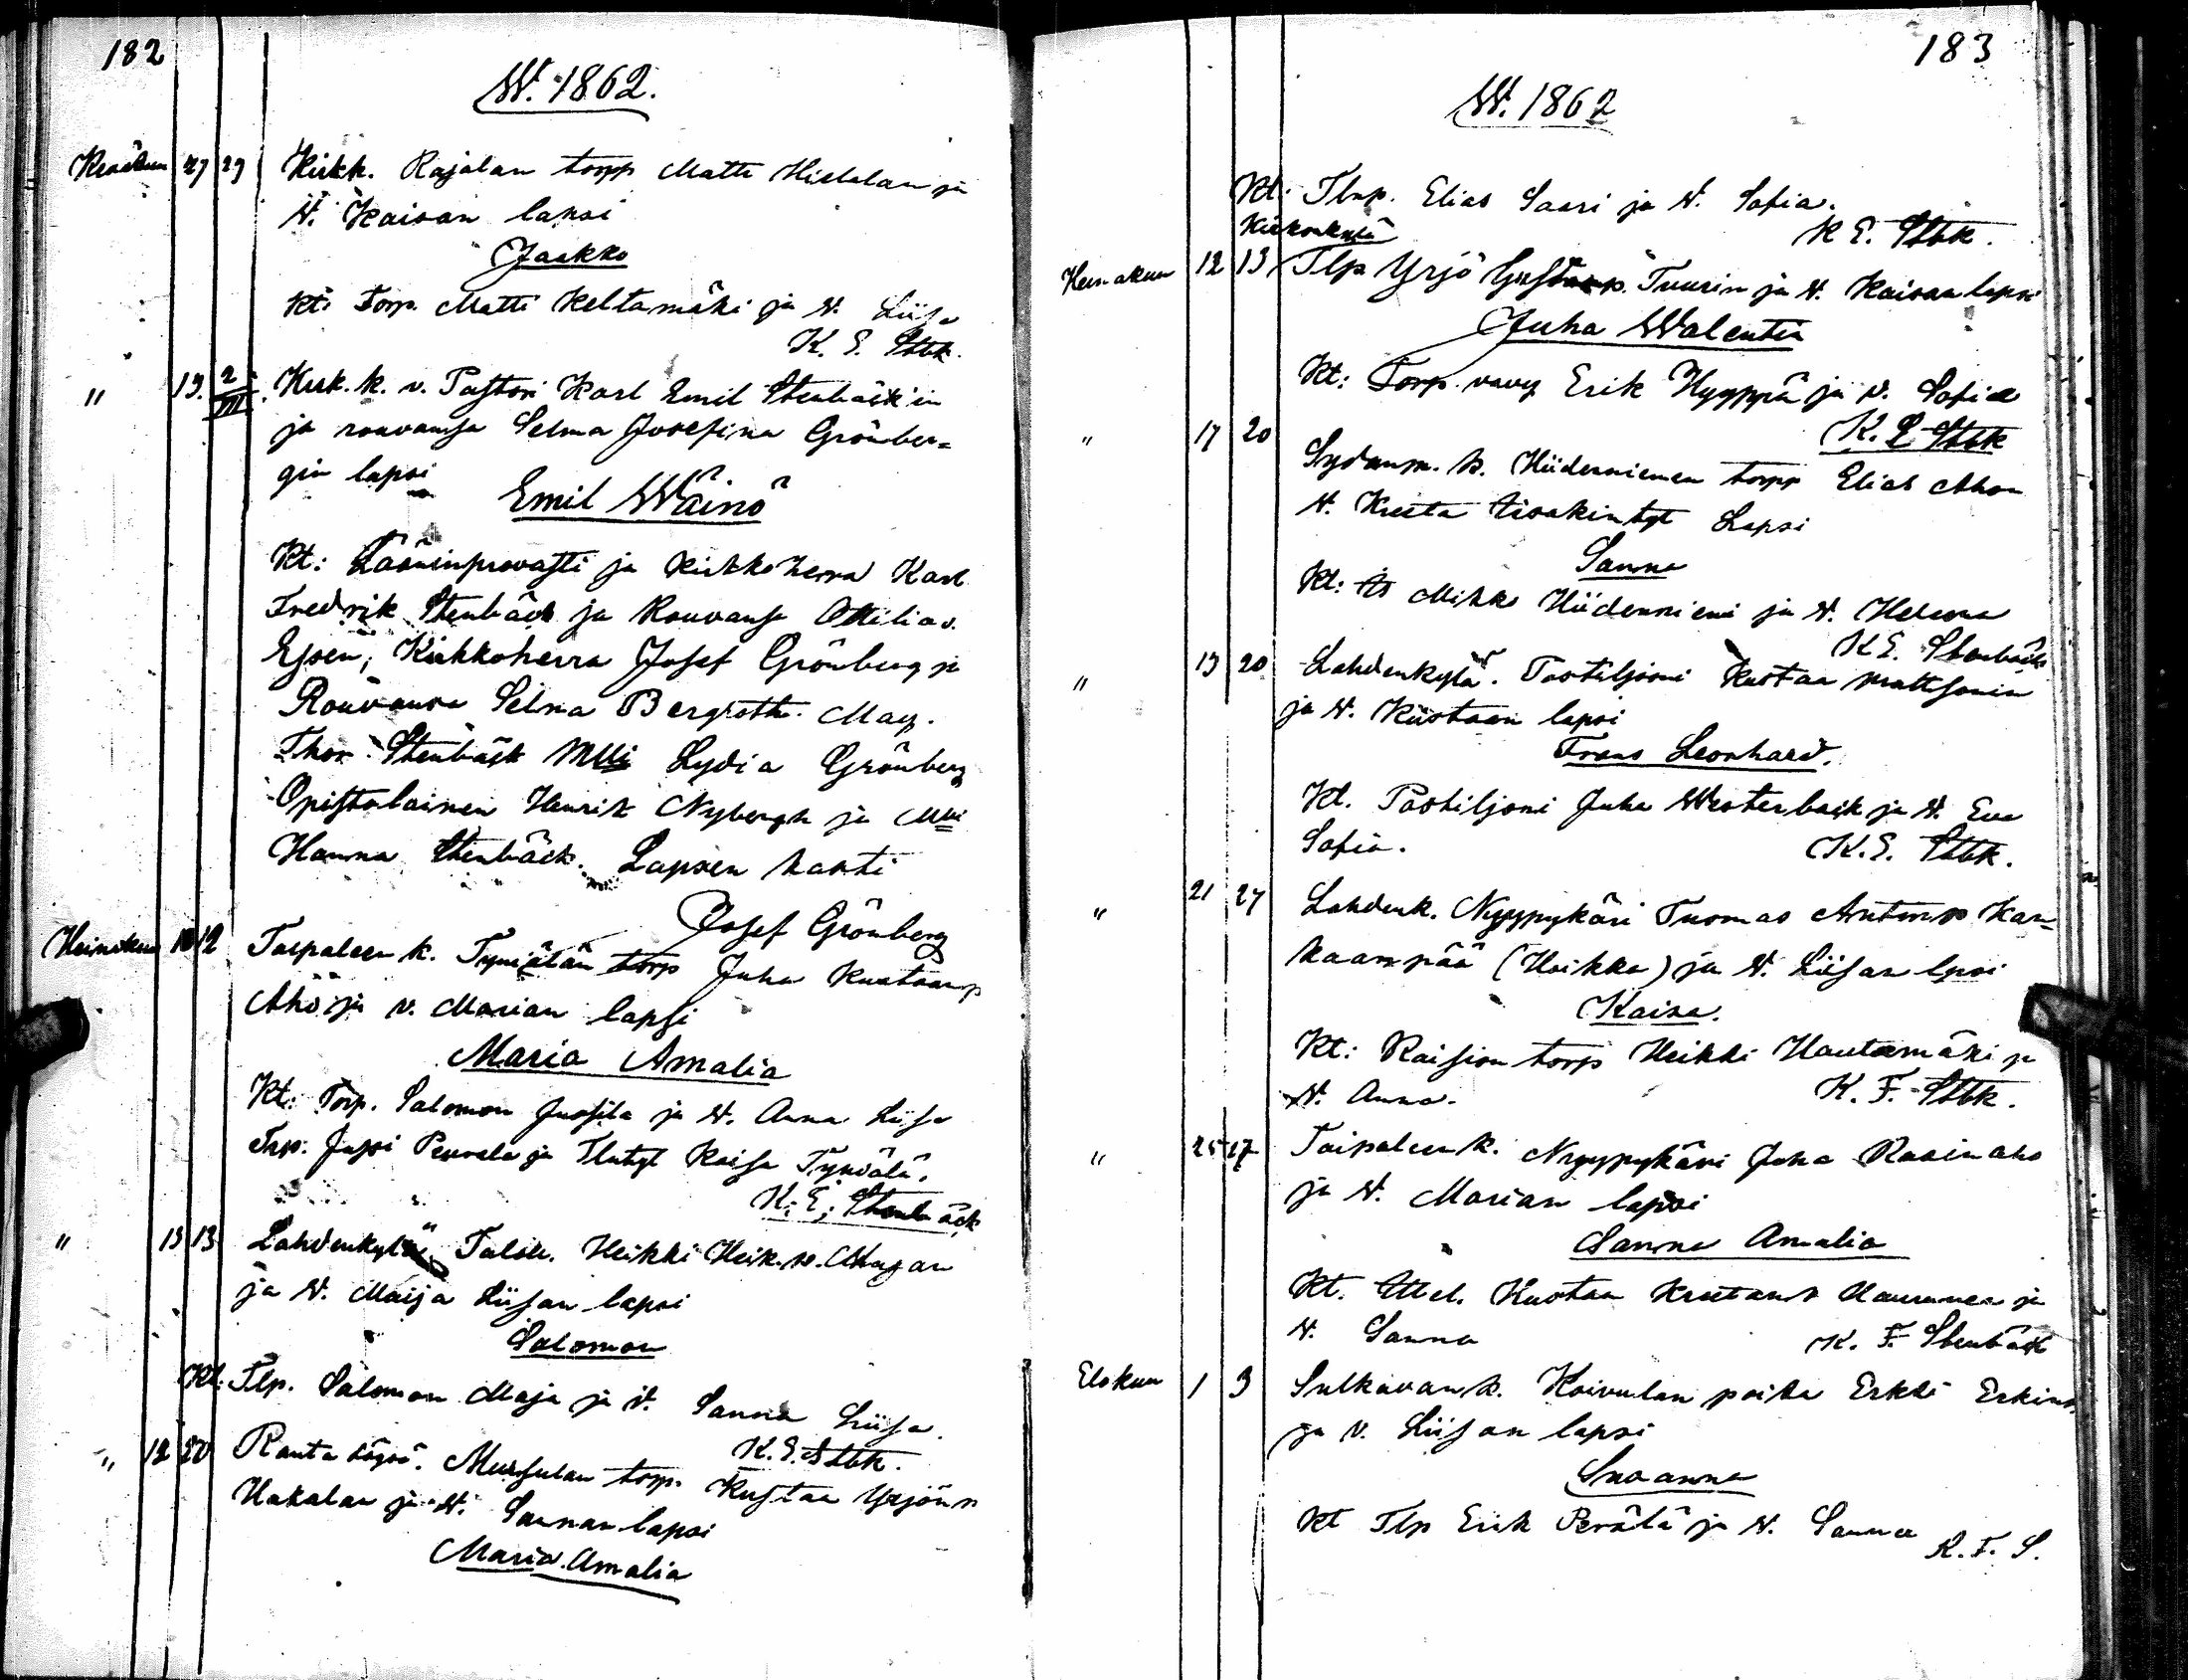 182
W. 1862.
Kesäkuu 27 29 Kirkk. Rajalan torpp Matti Hietalan ja
W. Kaisan lapsi
Jaakko
Kt: Torp. Matti Keltamäki ja W. Liisa
K. E. Stbk.
" 19. 2/VII. Kirk. k. v. Pastori Karl Emil Stenbäck'in
ja rouvansa Selma Josefina Grönber=
gin lapsi
Emil Wäinö
Kt: Lääninprovasti ja Kirkkoherra Karl
Fredrik Stenbäck ja Rouvansa Ottilia v.
Essen, Kirkkoherra Josef Grönberg ja
Rouvansa Selma Bergroth. Mag.
Thor Stenbäck Mlli Lydia Grönberg
Opistolainen Henrik Nybergh ja Mlli
Hanna Stenbäck. Lapsen kasti
Josef Grönberg
Heinäkuu 10 12 Taipaleen k. torp Juha Kustaanp
Aho ja v. Marian lapsi
Maria Amalia
Kt: Torp. Salomon Jussila ja W. Anna Liisa
Trp. Jussi Penrala ja Tlntyt Kaisa Tynjälä.
K. E. Stenbäck
" 13 13 Lahdenkylä Talok. Heikki Heik. p.
ja W. Maija Liisan lapsi
Salomon
Kt: Tlp. Salomon Maja ja W. Sanna Liisa.
K. E. Stbk.
" 12 20 Ranta töysä. torp. Kustaa Yrjönp
Hakalan ja W. Sannan lapsi
Maria Amalia
183
W. 1862
Kt: Tlnp. Elias Saari ja W. Sofia.
K E. Stbk.
Kirkonkylä
Heinäkuu 12 13 Tlp Yrjö Tuurin ja W. Kaisan lapsi
Juha Walentin
Kt: Torp. vävy Erik Hyyppä ja v. Sofia
K. E Stbk
" 17 20 Sydänm. k. Hiidenniemen torpp Elias Ahon
W. Kreeta Iisakintyt Lapsi
Sanna
Kt: Is Mikko Hiidenniemi ja W. Helena
K E. Stenbäck
" 19 20 Lahdenkylä. Postiljooni Kustaa Mattsonin
ja W. Kustaan lapsi
Frans Leonhard.
Kt. Postiljoni Juha Westerback ja W. Eva
Sofia. K. E. Stbk.
" 21 27 Lahdenk. Nyypykäri Tuomas Antinp Kan=
kaanpää (Hoikka) ja W. Liisan lpsi
Kaisa.
Kt: Raision torp Heikki Hautamäki ja
W. Anna. K. F. Stbk.
" 25 27 Taipaleen k. Nyypykäri Juha Rasinaho
ja W. Marian lapsi
Sanna Amalia
Kt. Kustaa Kustaanp ja
W. Sanna K. F. Stenbäck
Elokuu 1 3 Sulkavan k. Koivulan poika Erkki Erkinp.
ja v. Liisan lapsi
Susanna
Kt Tlp Erik Perälä ja W. Sanna
K. F. S.